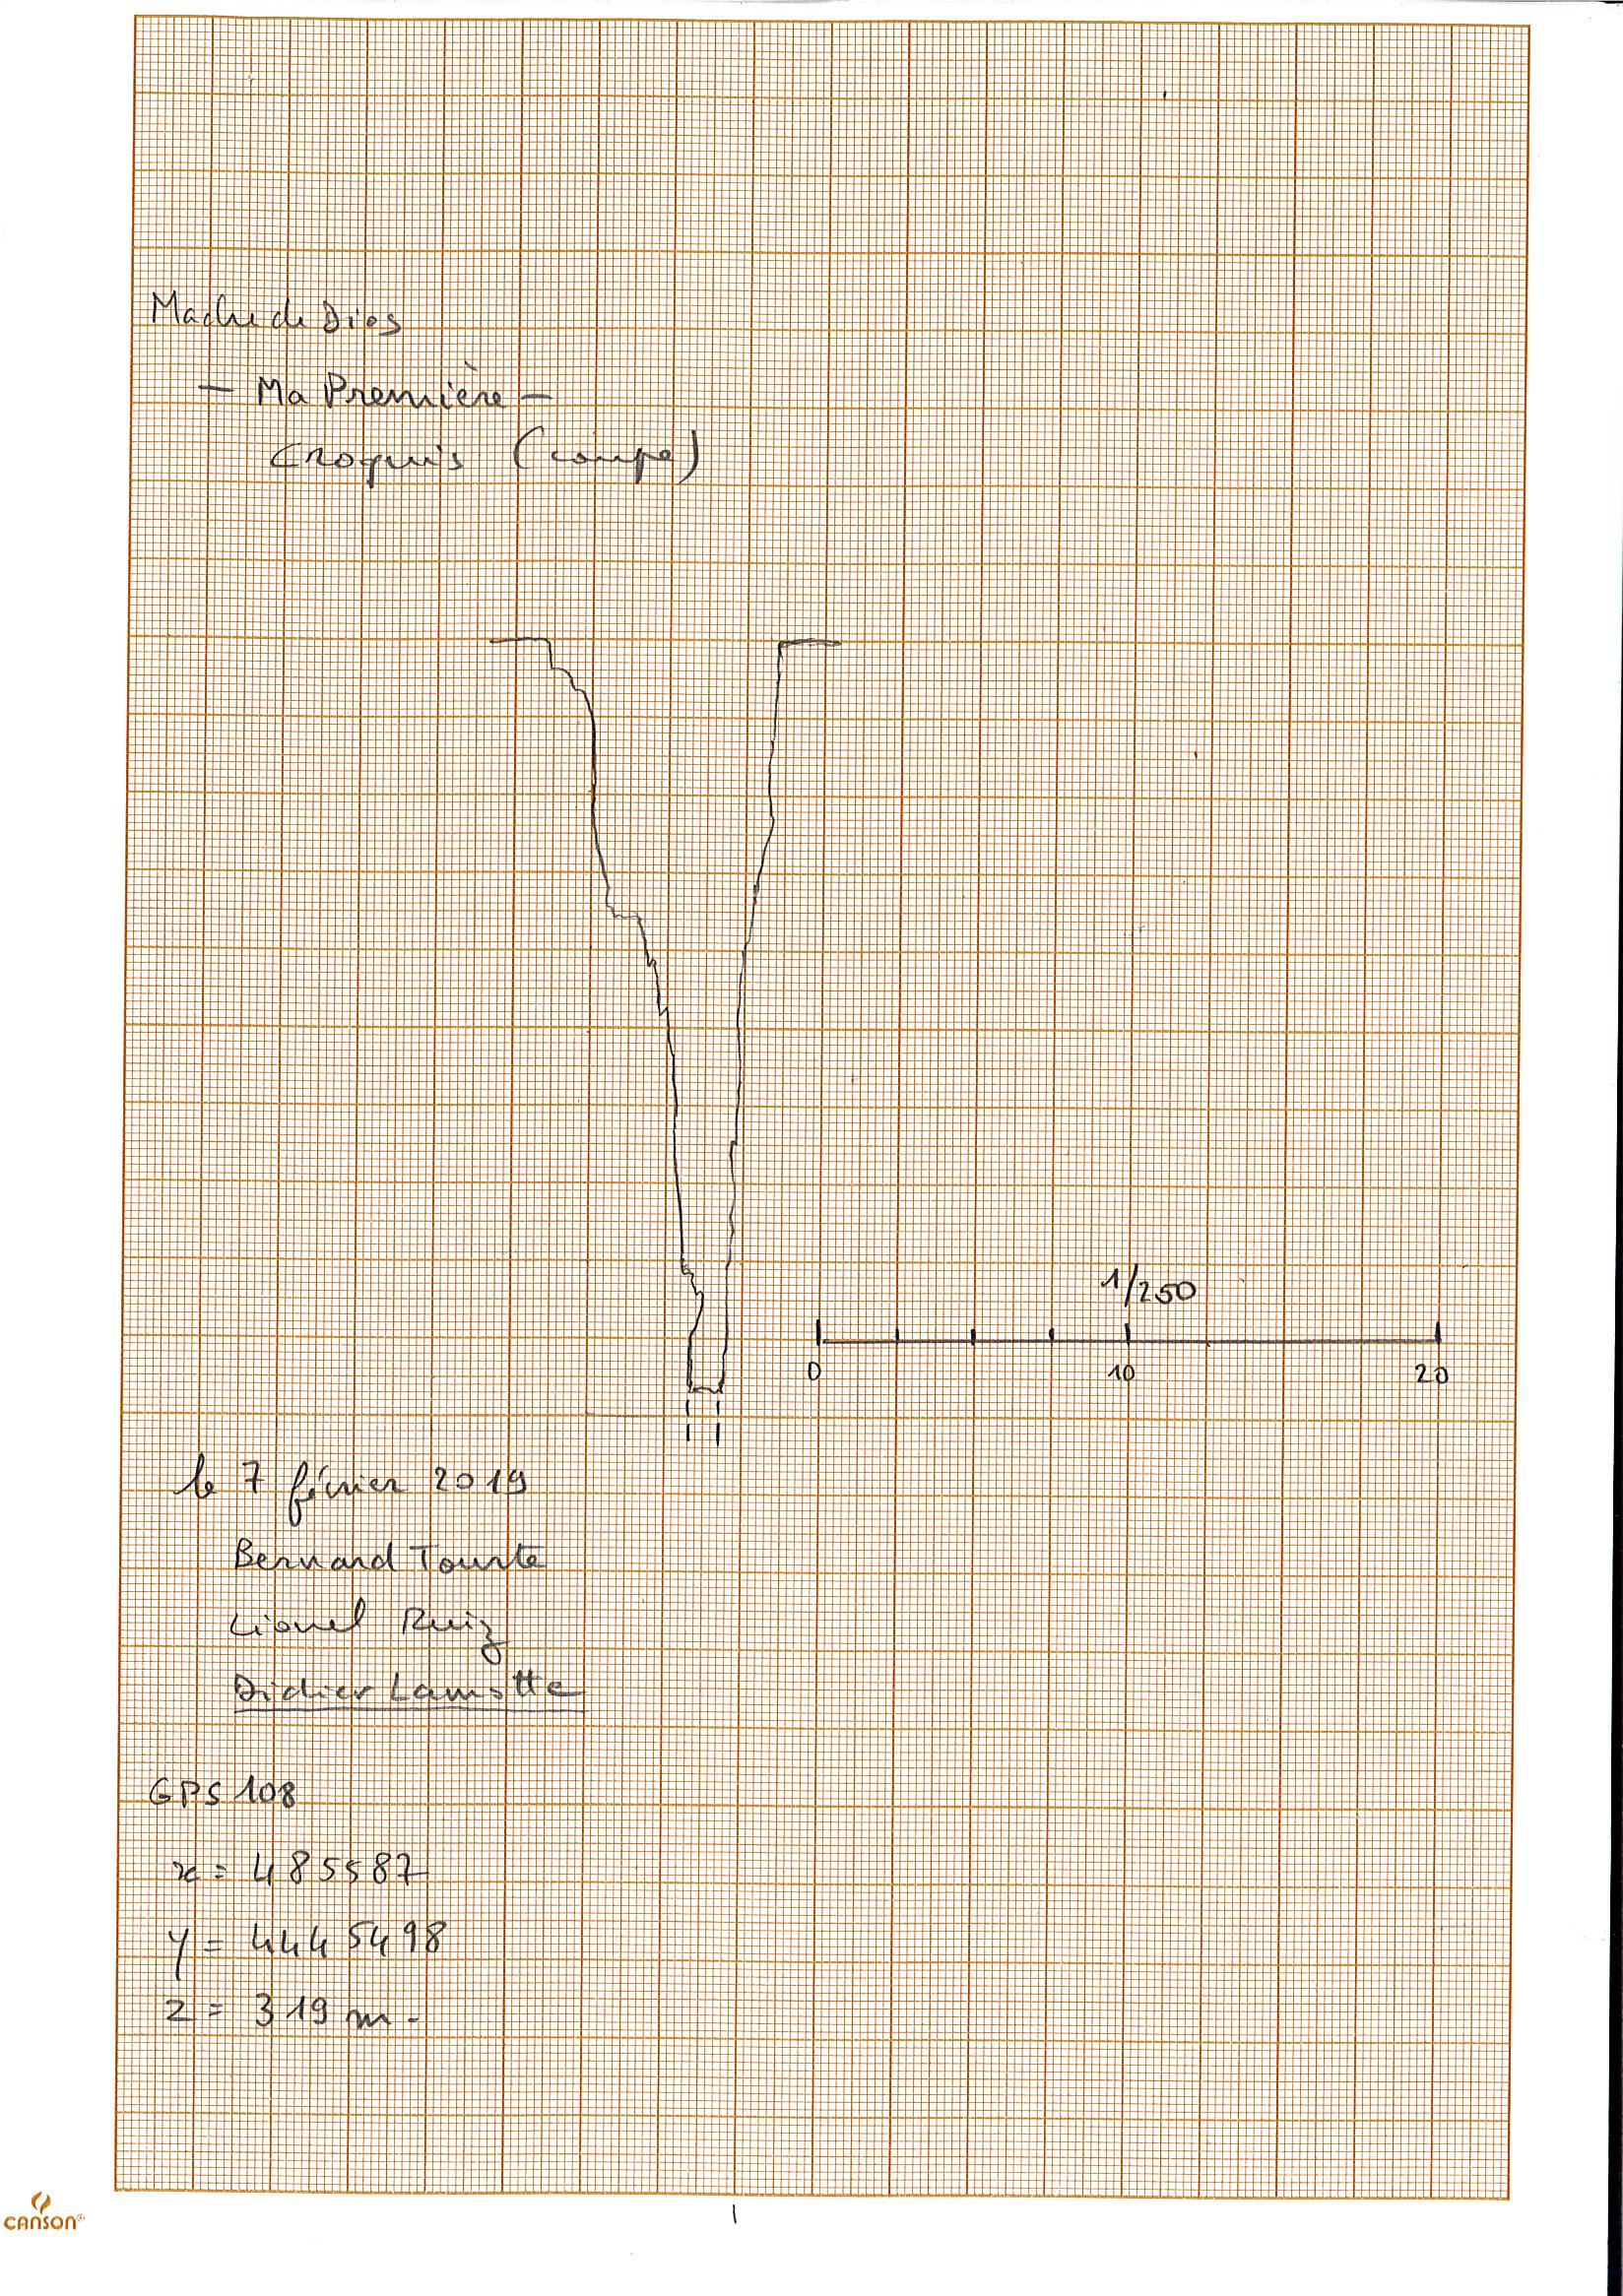 Madre de Dios
- Ma Première -
Croquis (coupe)
1/250
0 10 20
le 7 février 2019
Bernard Tourte
Lionel Ruiz
Didier Lamotte
GPS 108
x = 485587
y = 4445498
z = 319 m.
CANSON®